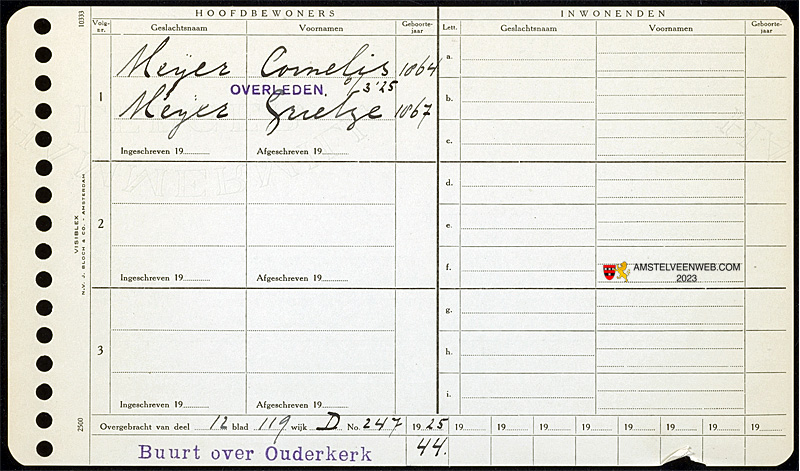 HOOFDBEWONERS
INWONENDEN
Volg-nr.
Geslachtsnaam
Voornamen
Geboorte-jaar
Lett.
Geslachtsnaam
Voornamen
Geboorte-jaar
10333
1
Meijer Cornelis 1864
OVERLEDEN. 9/3'25
Meijer Grietje 1867
Ingeschreven 19
Afgeschreven 19
2
Ingeschreven 19
Afgeschreven 19
3
Ingeschreven 19
Afgeschreven 19
a.
b.
c.
d.
e.
f.
g.
h.
i.
AMSTELVEENWEB.COM
2023
VISIBLEX
N.V. J. BLOCH & CO. - AMSTERDAM
2500
Overgebracht van deel 12 blad 119 wijk D No. 247 1925 19 19 19 19 19 19 19 19
Buurt over Ouderkerk 44.